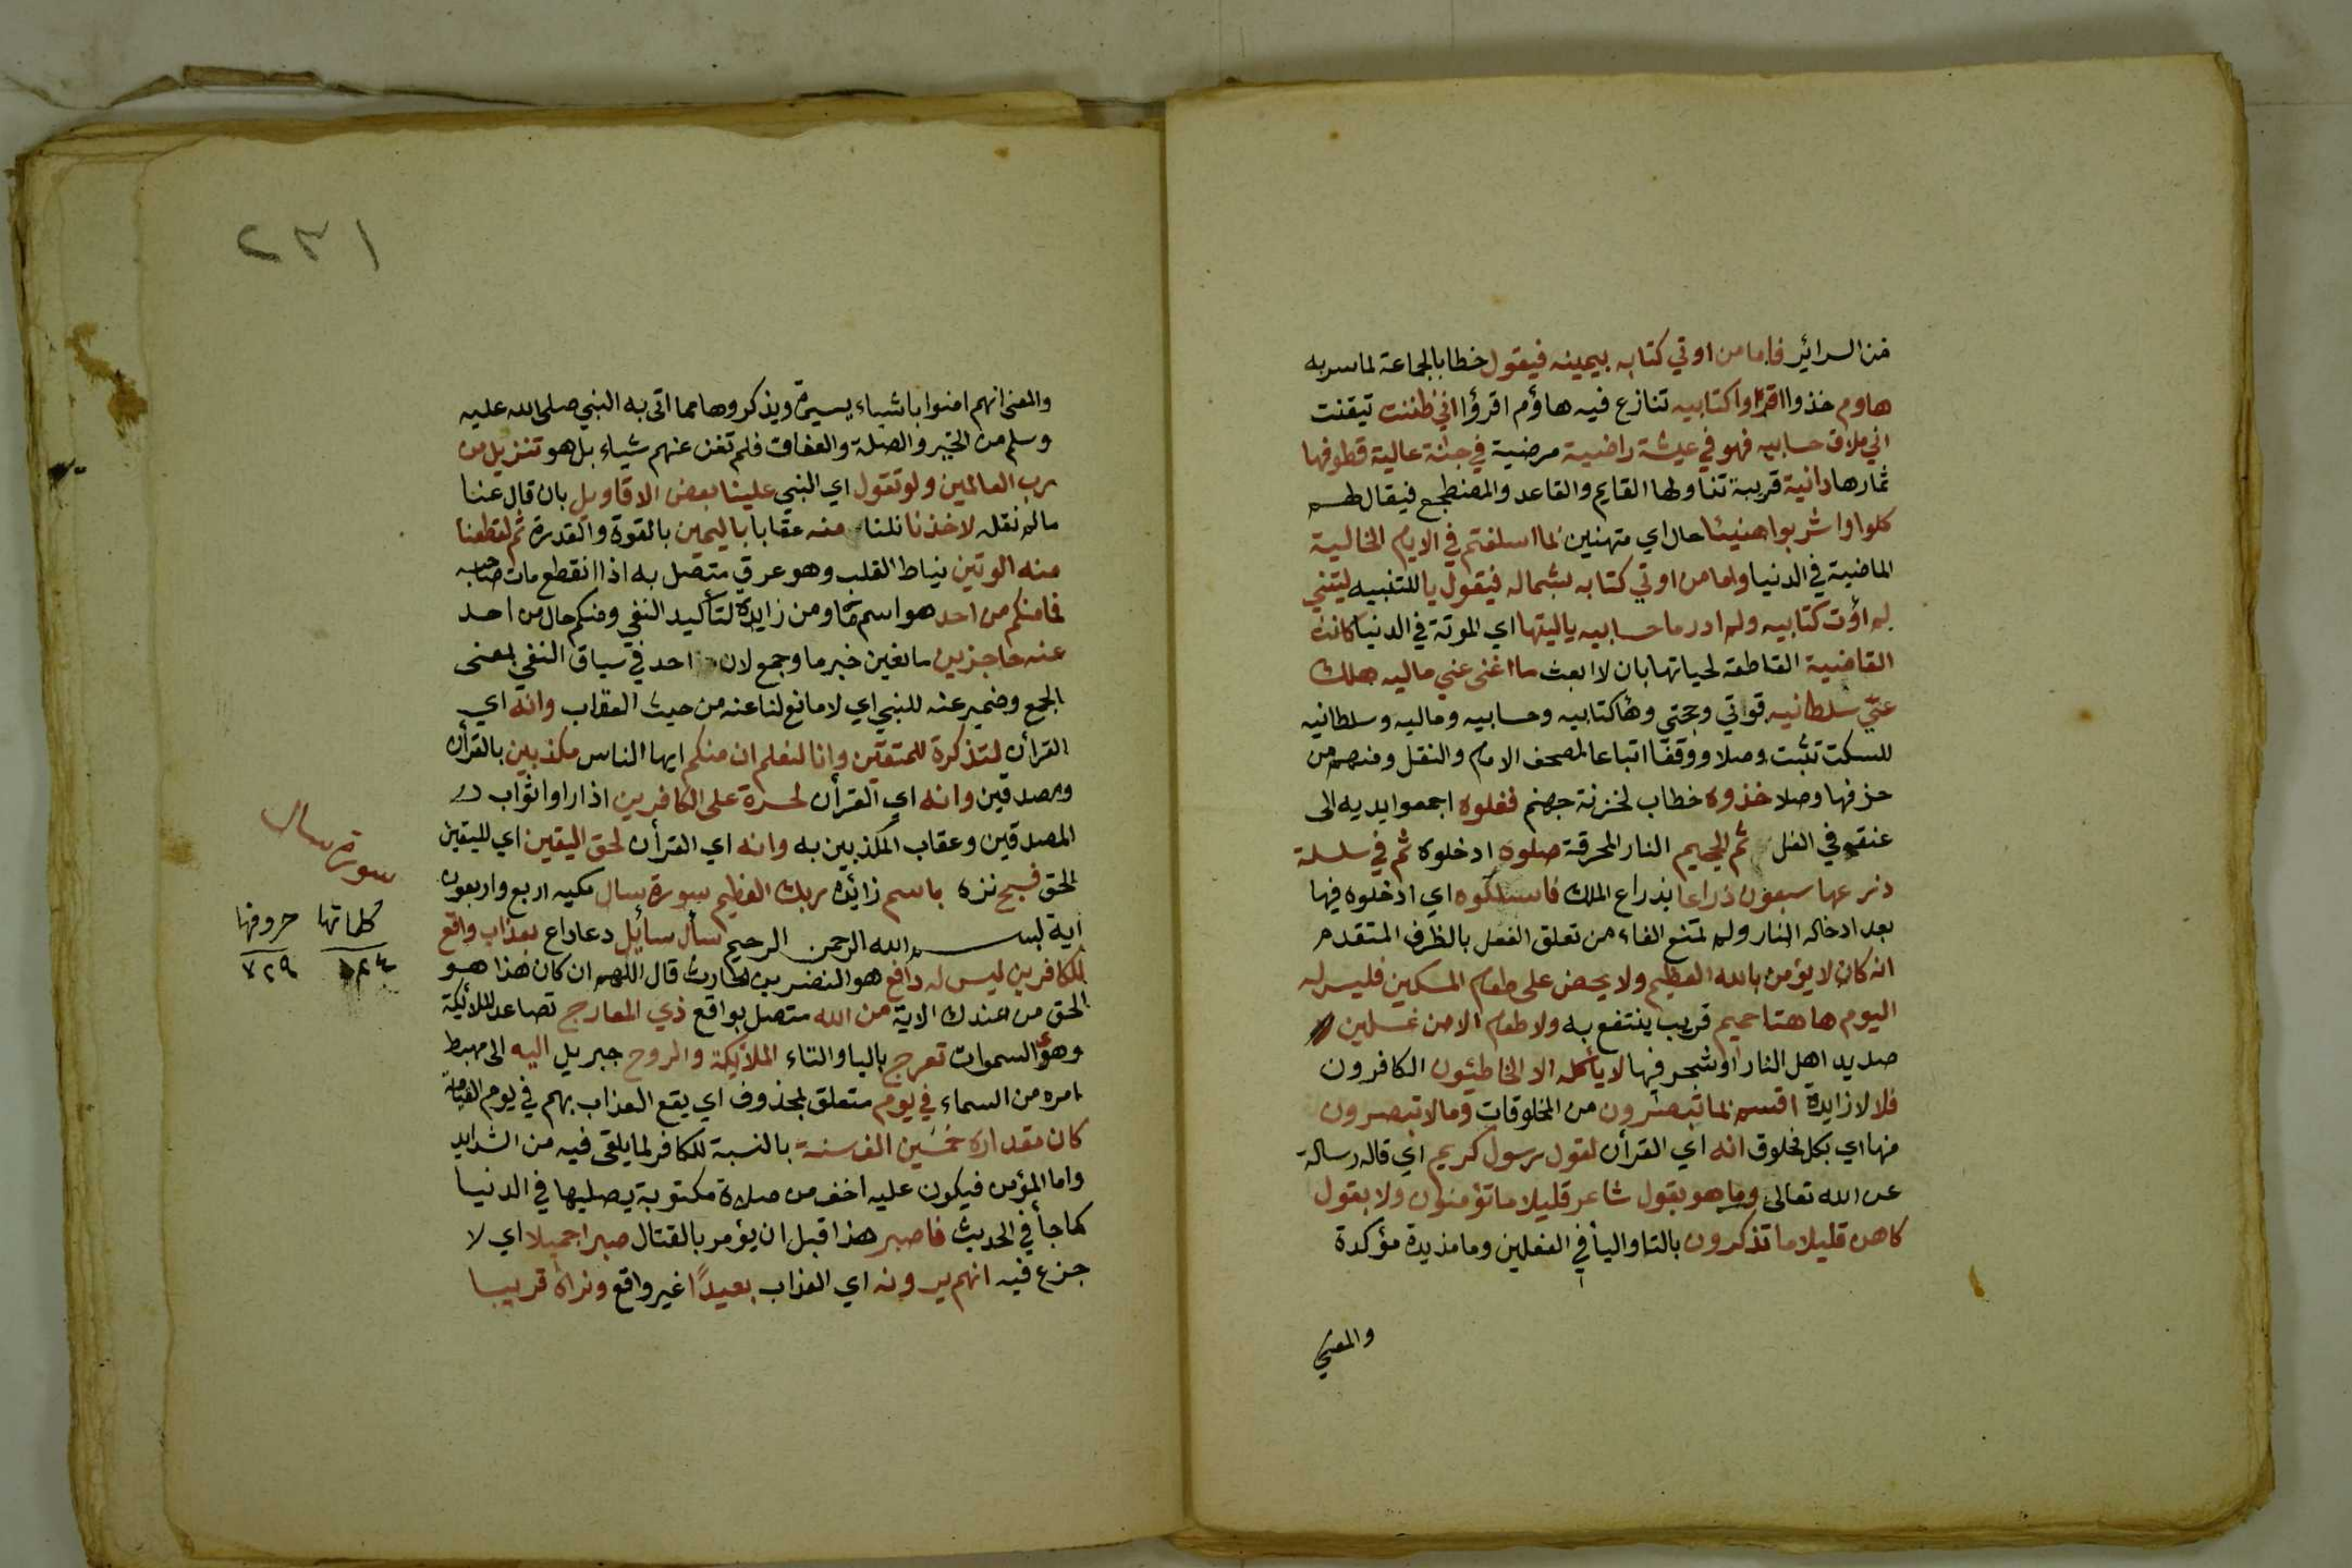 من السرائر فاما من اوتي كتابه بيمينه فيقول خطابا لجماعة لما سر به
هاوم خذوا اقرؤا كتابيه تنازع فيه هاؤم اقرؤا اني ظننت تيقنت
اني ملاق حسابيه فهو في عيشة راضية مرضية في جنة عالية قطوفها
ثمارها دانية قريبة تناولها القايم والقاعد والمضطجع فيقال لهم
كلوا واشربوا هنيئا حال اي متهنين بما اسلفتم في الايام الخالية
الماضية في الدنيا واما من اوتي كتابه بشماله فيقول يا للتنبيه ليتني
لم اؤت كتابيه ولم ادر ما حسابيه ياليتها اي الموتة في الدنيا كانت
القاضية القاطعة لحياتها بان لا ابعث ما اغنى عني ماليه هلك
عني سلطانيه قوتي وحجتي وها كتابيه وحسابيه وماليه وسلطانيه
للسكت تثبت وصلا ووقفا اتباعا لمصحف الامام والنقل ومنهم من
حذفها وصلا خذوه خطاب لخزنة جهنم فغلوه اجمعوا يديه الى
عنقه في الغل ثم الجحيم النار المحرقة صلوه ادخلوه ثم في سلسلة
ذرعها سبعون ذراعا بذراع الملك فاسلكوه اي ادخلوه فيها
بعد ادخاله النار ولم تمنع الفاء من تعلق الفعل بالظرف المتقدم
انه كان لا يؤمن بالله العظيم ولا يحض على طعام المسكين فليس له
اليوم ها هنا حميم قريب ينتفع به ولا طعام الا من غسلين
صديد اهل النار او شجر فيها لا يأكله الا الخاطئون الكافرون
فلا لا زايدة اقسم بما تبصرون من المخلوقات وما لا تبصرون
منها اي بكل مخلوق انه اي القرأن لقول رسول كريم اي قاله رسالة
عن الله تعالى وما هو بقول شاعر قليلا ما تؤمنون ولا بقول
كاهن قليلا ما تذكرون بالتا واليأ في الفعلين وما مذيدة مؤكدة
والمعني
٢٣١
والمعنى انهم امنوا باشياء يسيرة ويذكروها مما اتى به النبي صلى الله عليه
وسلم من الخير والصلة والعفاف فلم تغن عنهم شياء بل هو تنزيل من
رب العالمين ولو تقول اي النبي علينا بعض الاقاويل بان قال عنا
مالم نقله لاخذنا نلنا منه عقابا باليمين بالقوة والقدرة ثم لقطعنا
منه الوتين نياط القلب وهو عرق متصل به اذا انقطع مات صاحبه
فما منكم من احد هو اسم ما ومن زايدة لتأكيد النفي ومنكم حال من احد
عنه حاجزين مانعين خبر ما وجمع لان احد في سياق النفي بمعنى
الجمع وضمير عنه للنبي اي لا مانع لنا عنه من حيث العقاب وانه اي
القرأن لتذكرة للمتقين وانا لنعلم ان منكم ايها الناس مكذبين بالقرأن
ومصدقين وانه اي القرأن لحسرة على الكافرين اذا راوا ثواب
المصدقين وعقاب المكذبين به وانه اي القرأن لحق اليقين اي لليقين
الحق فسبح نزه باسم زائدة ربك العظيم سورة سال مكيه اربع واربعون
آية بسم الله الرحمن الرحيم سأل سائل دعا داع بعذاب واقع
للكافرين ليس له دافع هو النضر بن الحارث قال اللهم ان كان هذا هو
الحق من عندك الاية من الله متصل بواقع ذي المعارج تصاعد الملائكة
وهو السموات تعرج باليا والتاء الملائكة والروح جبريل اليه الى مهبط
امره من السماء في يوم متعلق بمحذوف اي يقع العذاب بهم في يوم القيامة
كان مقداره خمسين الف سنة بالنسبة للكافر لما يلقى فيه من الشدايد
واما المؤمن فيكون عليه اخف من صلاة مكتوبة يصليها في الدنيا
كما جأ في الحديث فاصبر هذا قبل ان يؤمر بالقتال صبرا جميلا اي لا
جزع فيه انهم يرونه اي العذاب بعيدًا غير واقع ونراه قريبا
سورة سال
كلماتها حروفها
٧٢٩